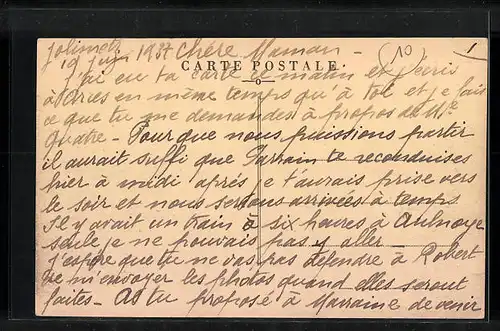 Jolimetz
19 juin 1937 Chère Maman -
CARTE POSTALE.
10
1
J'ai eu ta carte ce matin et j'écris
à en même temps qu'à toi et je fais
ce que tu me demandes à propos de Mlle
Quatre - Pour que nous puissions partir
il aurait suffi que Parrain te reconduises
hier à midi après je t'aurais prise vers
le soir et nous serions arrivées à temps
Il y avait un train à six heures à Aulnoye
seule je ne pouvais pas y aller -
j'espère que tu ne vas pas défendre à Robert
de m'envoyer les photos quand elles seront
faites - As tu proposé à Marraine de venir